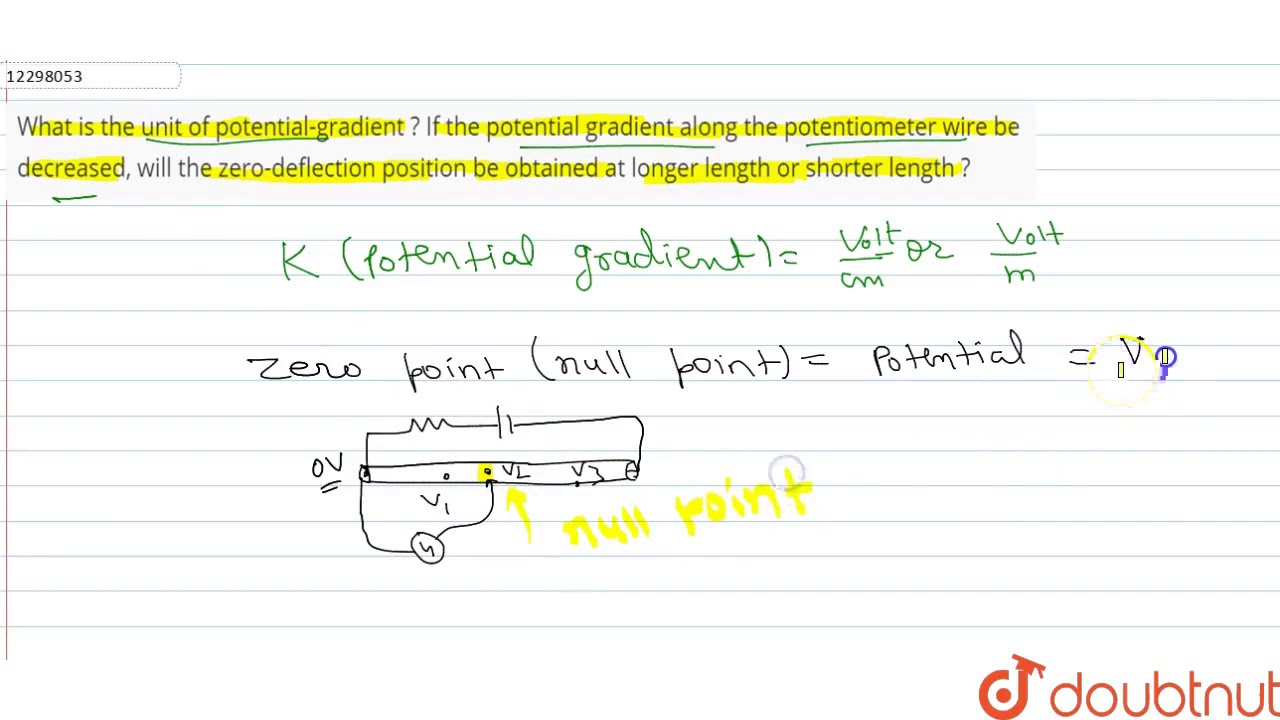 12298053
What is the unit of potential-gradient ? If the potential gradient along the potentiometer wire be
decreased, will the zero-deflection position be obtained at longer length or shorter length ?
K (potential gradient) = Volt/cm or Volt/m
Zero point (null point) = Potential = V
0V
V1
V2
V3
null point
doubtnut